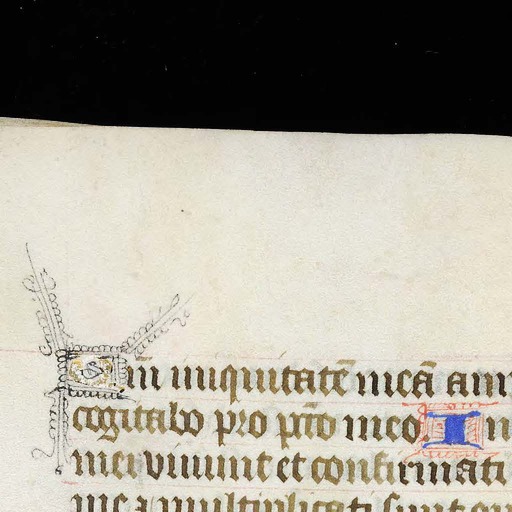 Qm̄ iniquitatē meā ann
cogitabo pro pctō meo. In
mei viuunt et confirmati
me ⁊ multiplicati sunt qu